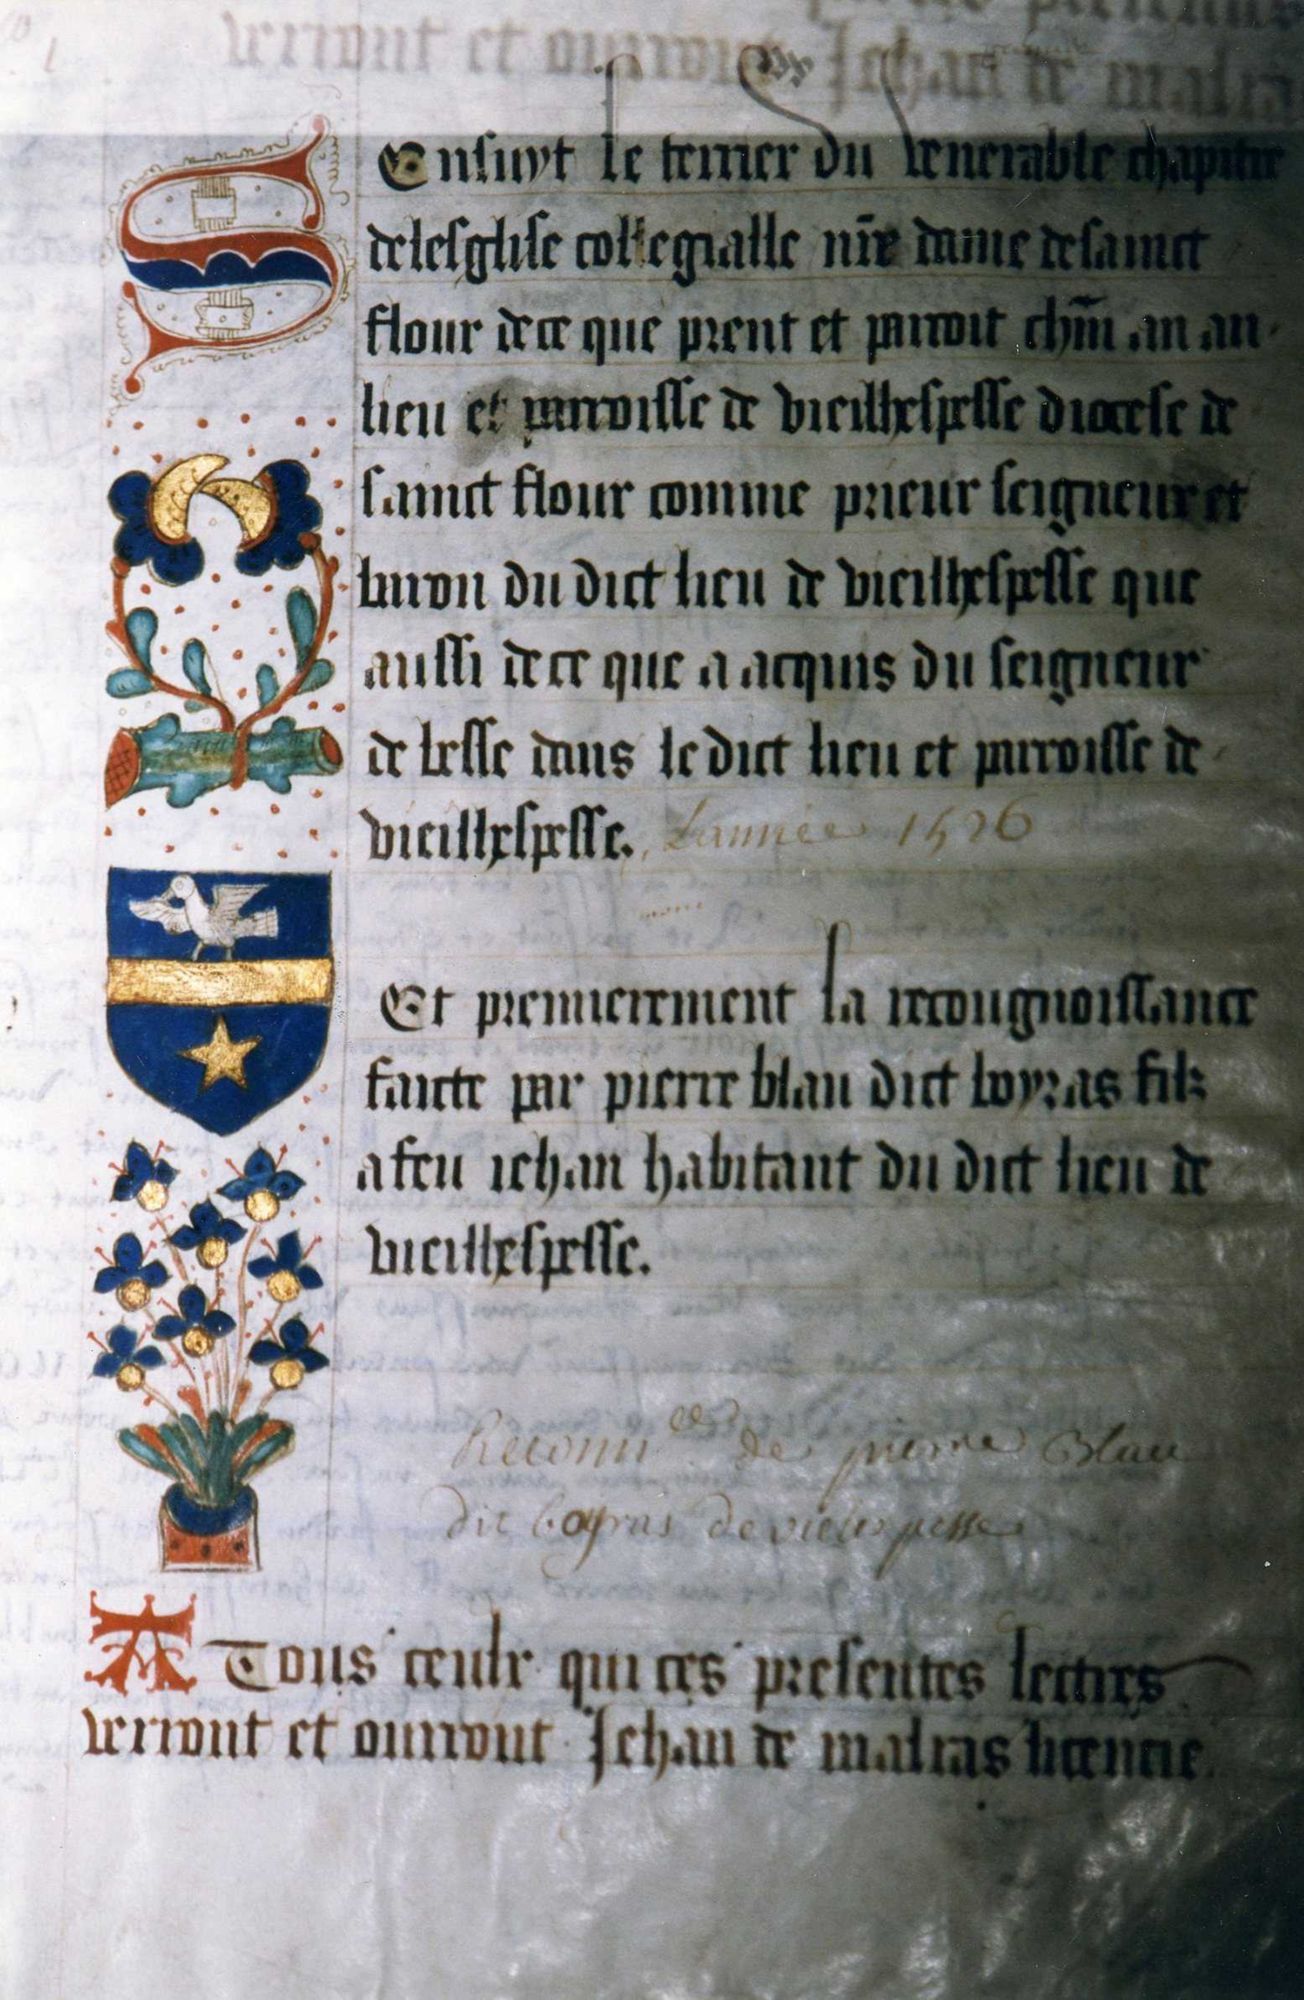 verront et ourront Jehan de malra
S Ensuyt le terrier du venerable chapitre
de lesglise collegialle nr̄e dame de sainct
flour de ce que prent et parroit chūn an au
lieu et parroisse de vieilhespesse diocese de
sainct flour comme prieur seigneur et
baron du dict lieu de vieilhespesse que
aussi de ce que a acquis du seigneur
de besse dans le dict lieu et parroisse de
vieilhespesse. Lannée 1526
Et premierement la recougnoissance
faicte par pierre blau dict boyras filz
a feu iehan habitant du dict lieu de
vieilhespesse.
Reconn.ce de pierre Blau
dit boyras de vieiespesse
A Tous ceulx qui ces presentes lectres
verront et ourront Jehan de malras licencie